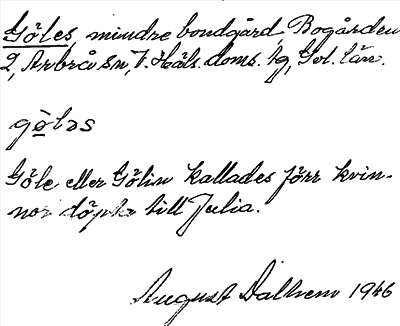 Göles, mindre bondgård, Bogården
2, Arbrå sn, V. Häls. doms. hg, Gvl. län.
gö̱ləs
Göle eller Gölin kallades förr kvin-
nor döpta till Julia.
August Dalhem 1946